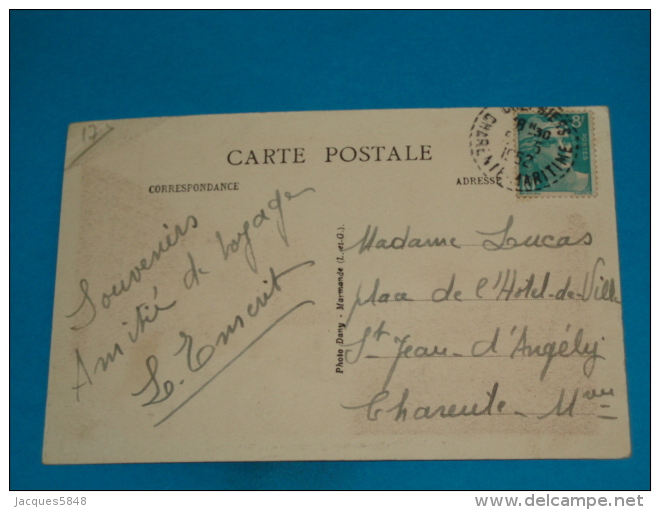 17
CARTE POSTALE
CORRESPONDANCE
ADRESSE
CHARENTE MARITIME
Souvenirs
Amitié de voyage
Photo Dany - Marmande (L.-et-G.)
Madame Lucas
place de l'Hôtel-de-Ville
St Jean-d'Angély
Charente-Mme
Jacques5848
delcampe.net